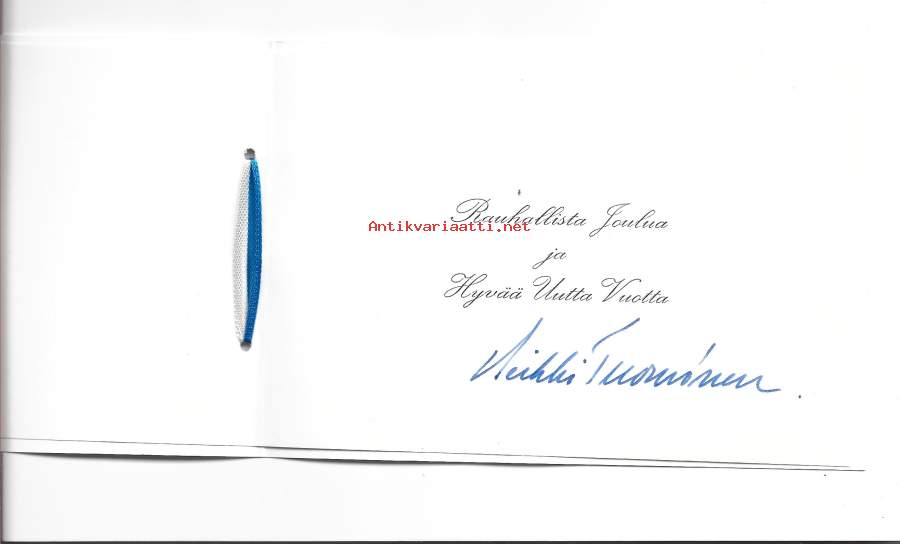 Rauhallista Joulua
Antikvariaatti.net
ja
Hyvää Uutta Vuotta
Heikki Tuominen